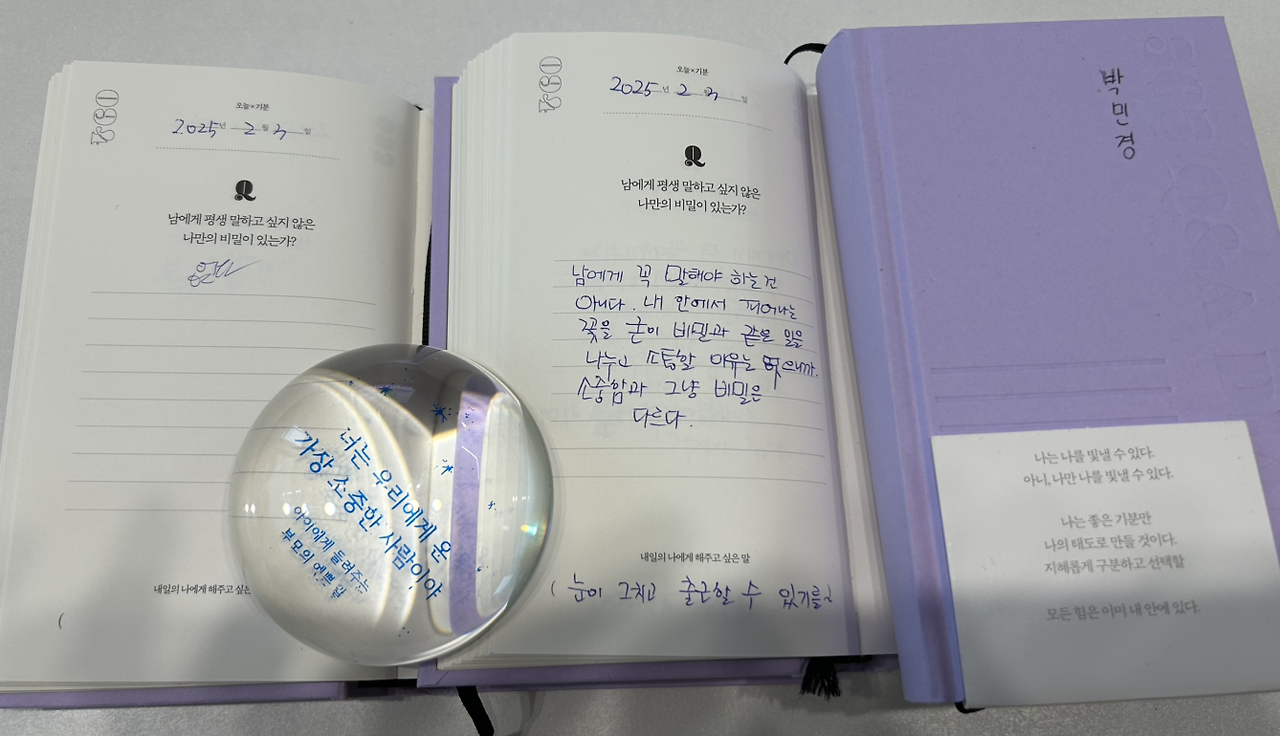 034
오늘×기분
2025년 2월 3일
Q
남에게 평생 말하고 싶지 않은
나만의 비밀이 있는가?
내일의 나에게 해주고 싶은
(
너는 우리에게 온
가장 소중한 사람이야
아이에게 들려주는
부모의 예쁜 말
034
오늘×기분
2025년 2 3 일
Q
남에게 평생 말하고 싶지 않은
나만의 비밀이 있는가?
남에게 꼭 말해야 하는건
아니다. 내 안에서 피어나는
꽃을 굳이 비밀과 같은 일을
나누고 소통할 이유는 없으니까.
소중함과 그냥 비밀은
다르다.
내일의 나에게 해주고 싶은 말
( 눈이 그치고 출근할 수 있기를
박민경
나는 나를 빛낼 수 있다.
아니, 나만 나를 빛낼 수 있다.
나는 좋은 기분만
나의 태도로 만들 것이다.
지혜롭게 구분하고 선택할
모든 힘은 이미 내 안에 있다.